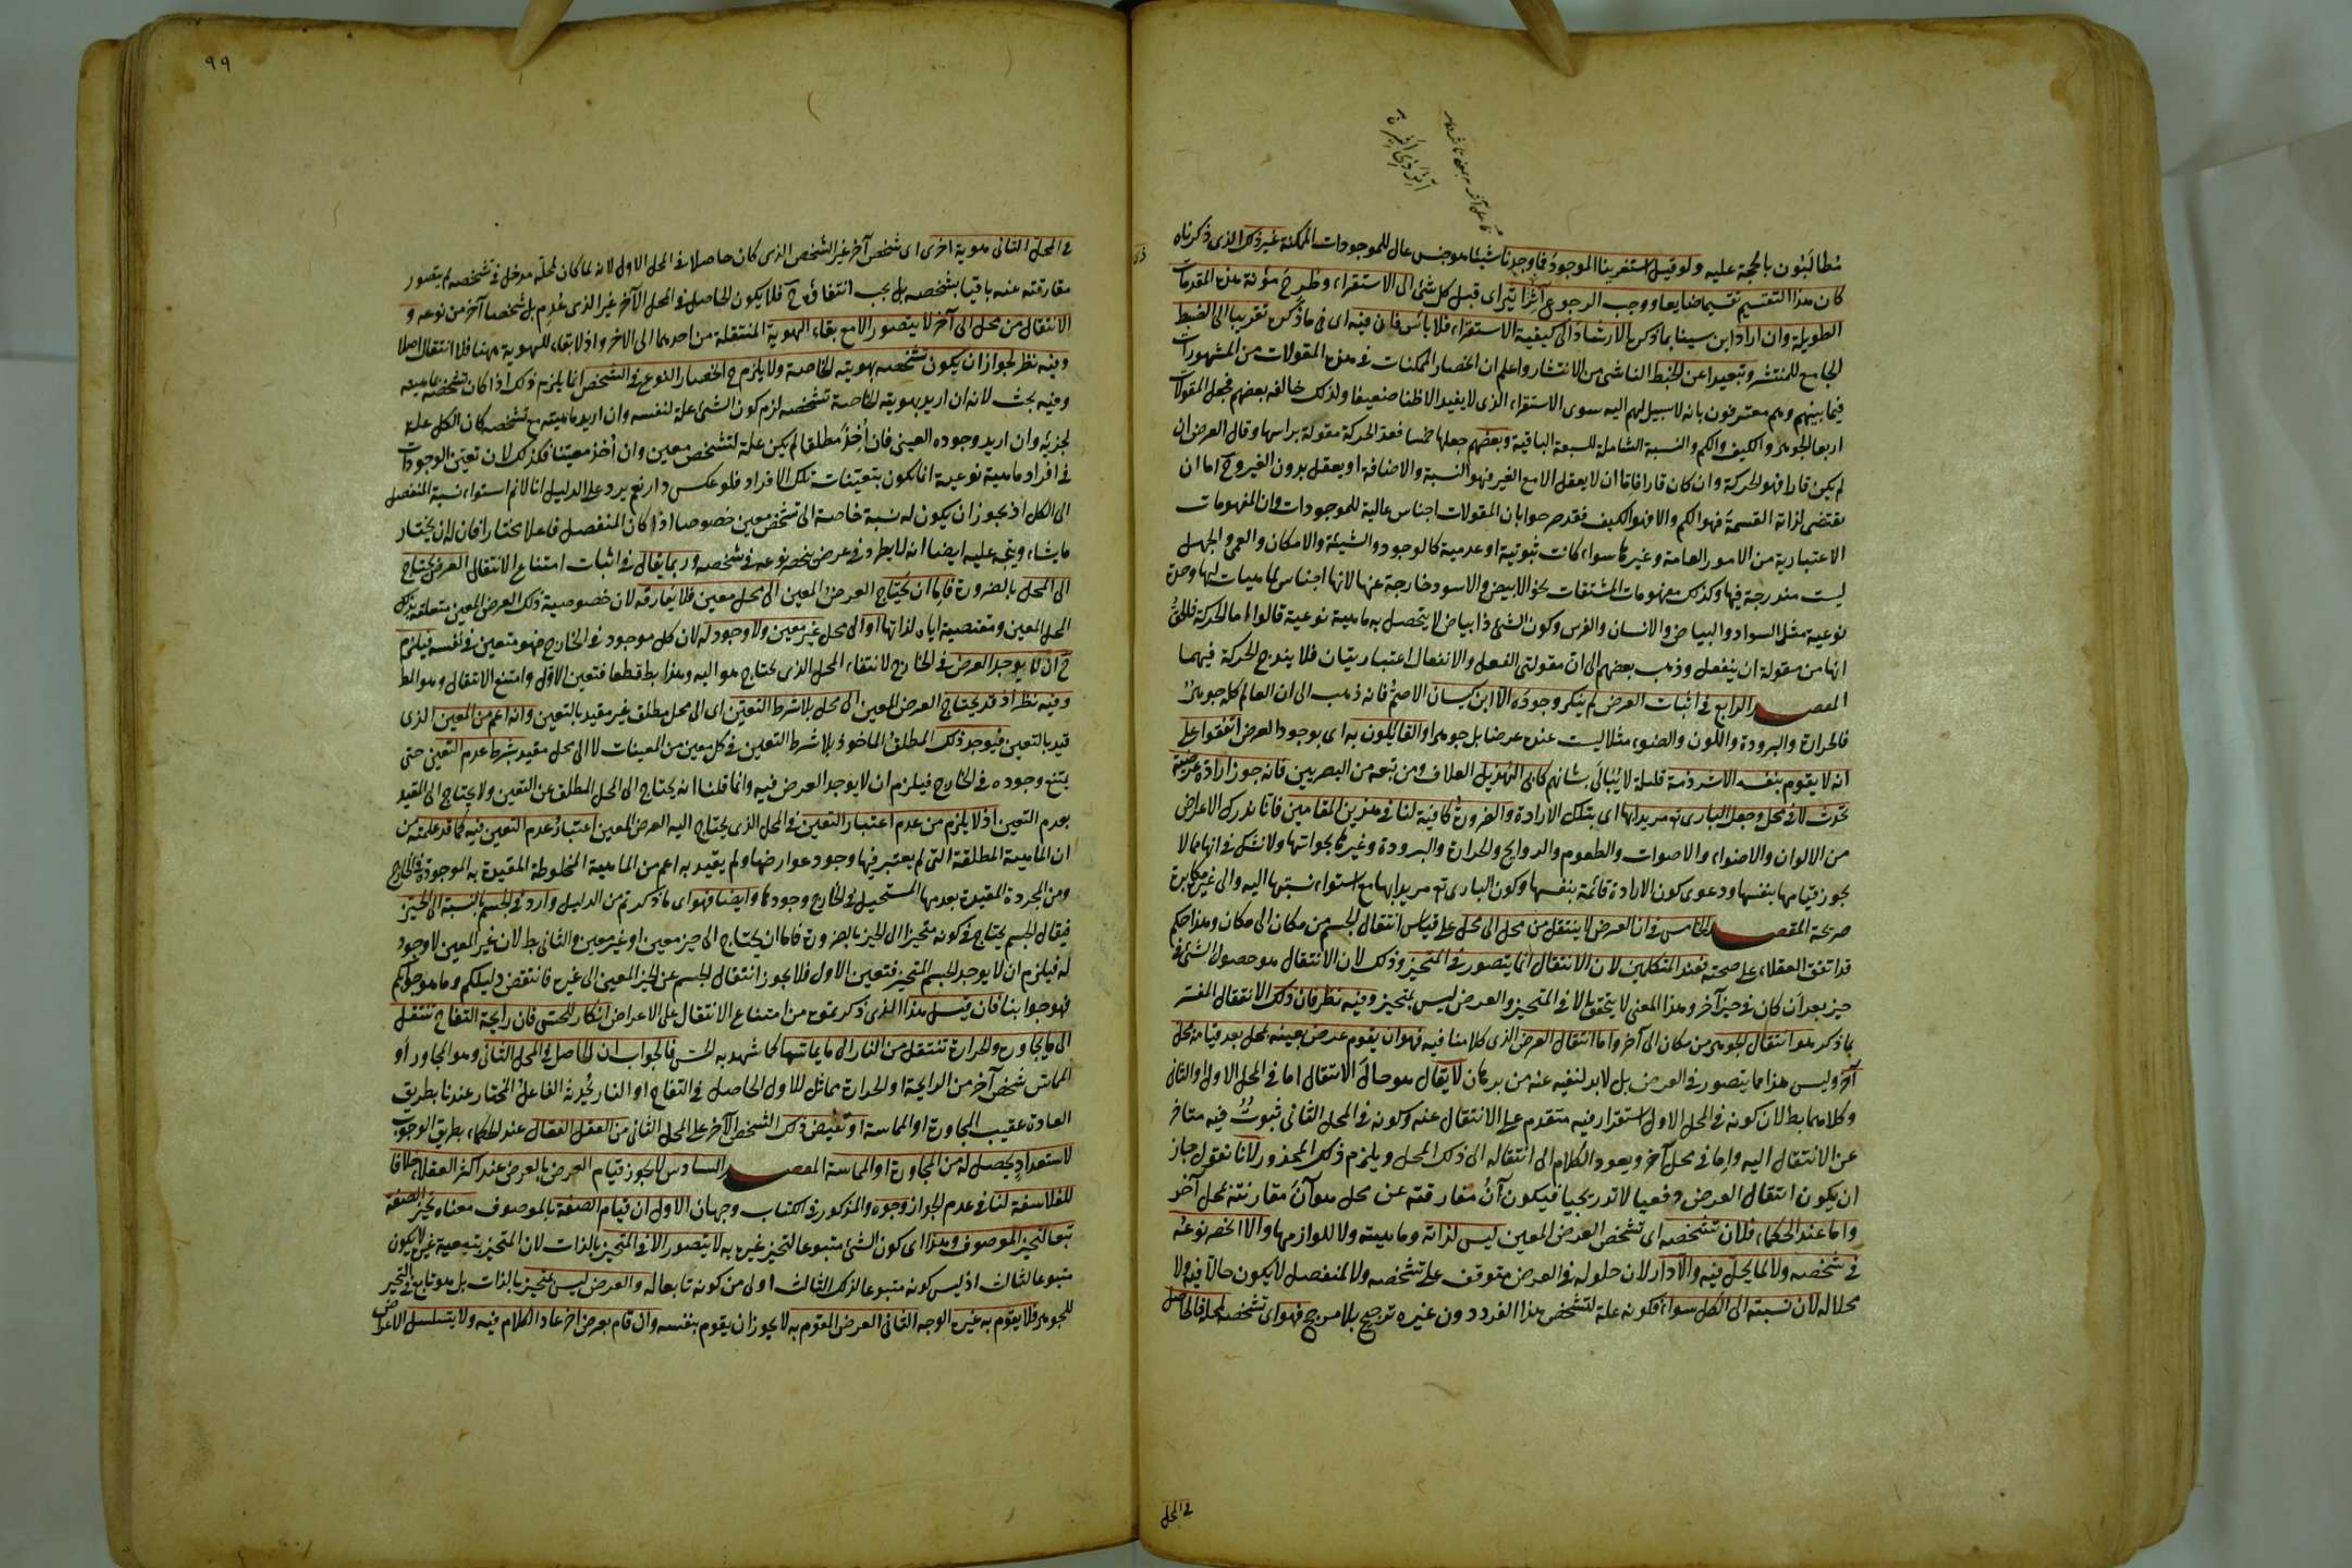 مطالبون بالحجة عليه ولو قيل استقرينا الموجود فاوجدنا شيئا هو جنس عال للموجودات الممكنة غير ذلك الذى ذكرناه
كان هذا التقسيم تقسيما ضايعا ووجب الرجوع آثرا ثيرا اى قبل كل شئ الى الاستقراء وطرح مؤنة هذه المقدمات
الطويلة وان اراد ابن سينا بما ذكره الارشاد الى كيفية الاستقراء فلا بأس فان فيه اى فى ما ذكره تقريبا الى الضبط
الجامع للمنتشر وتبعيدا عن الخبط الناشئ من الانتشار واعلم ان انحصار الممكنات فى هذه المقولات من المشهورات
فيما بينهم وهم معترفون بانه لا سبيل لهم اليه سوى الاستقراء الذى لا يفيد الا ظنا ضعيفا ولذلك خالفه بعضهم فجعل المقولات
اربعا الجوهر والكيف والكم والنسبة الشاملة للسبعة الباقية وبعضهم جعلها خمسا فعد الحركة مقولة براسها وقال العرض ان
لم يكن قارا فهو الحركة وان كان قارا فاما ان لا يعقل الا مع الغير فهو النسبة والاضافة او يعقل بدون الغير وح اما ان
يقتضى لذاته القسمة فهو الكم والا فهو الكيف فقد صرحوا بان المقولات اجناس عالية للموجودات وان المفهومات
الاعتبارية من الامور العامة وغيرها سواء كانت ثبوتية او عدمية كالوجود والشيئة والامكان والعمى والجهل
ليست مندرجة فيها وكذلك مفهومات المشتقات نحو الابيض والاسود خارجة عنها لانها اجناس لماهيات لها وحدة
نوعية مثل السواد والبياض والانسان والفرس وكون الشئ ذا بياض لا يتحصل به ماهية نوعية قالوا اما الحركة فالحق
انها من مقولة ان ينفعل وذهب بعضهم الى ان مقولتى الفعل والانفعال اعتباريتان فلا يندرج الحركة فيهما
المقصد الرابع فى اثبات العرض لم ينكر وجوده الا ابن كيسان الاصم فانه ذهب الى ان العالم كله جوهر
فالحرارة والبرودة واللون والضوء مثلا ليست عنده عرضا بل جوهرا والقائلون به اى بوجود العرض اتفقوا على
انه لا يقوم بنفسه الا شرذمة قليلة لا يبالى بشانهم كابى الهذيل العلاف ومن تبعه من البصريين فانه جوز ارادة عرضية
تحدث لا فى محل وجعل البارى تع مريدا بها اى بتلك الارادة والضرورة كافية لنا فى هذين المقامين فانا ندرك الاعراض
من الالوان والاضواء والاصوات والطعوم والروايح والحرارة والبرودة وغيرها بحواسنا ولا نشك فى انها مما لا
يجوز قيامها بنفسها ودعوى كون الارادة قائمة بنفسها وكون البارى تع مريدا بها مع استواء نسبتها اليه والى غيره مكابرة
صريحة المقصد الخامس فى ان العرض لا ينتقل من محل الى محل على قياس انتقال الجسم من مكان الى مكان وهذا حكم
قد اتفق العقلاء على صحته فعند المتكلمين لان الانتقال انما يتصور فى المتحيز وذلك لان الانتقال هو حصول الشئ فى
حيز بعد ان كان فى حيز آخر وهذا المعنى لا يتحقق الا فى المتحيز والعرض ليس بمتحيز وفيه نظر فان ذلك الانتقال المفسر
بما ذكر هو انتقال الجوهر من مكان الى آخر واما انتقال العرض الذى كلامنا فيه فهو ان يقوم عرض بعينه بمحل بعد قيامه بمحل
آخر وليس هذا مما يتصور فى العرض بل لا بد لنفيه عنه من برهان لا يقال هو حال الانتقال اما فى المحل الاول او الثانى
وكلاهما بط لان كونه فى المحل الاول استقرار فيه متقدم على الانتقال عنه وكونه فى المحل الثانى ثبوت فيه متاخر
عن الانتقال اليه واما فى محل آخر ويعود الكلام الى انتقاله الى ذلك المحل ويلزم ذلك المحذور لانا نقول جاز
ان يكون انتقال العرض دفعيا لا تدريجيا فيكون آن مفارقته عن محل هو آن مقارنته لمحل آخر
واما عند الحكماء فلان تشخصه اى تشخص العرض المعين ليس لذاته وماهيته ولا للوازمها والا انحصر نوعه
فى شخصه ولا لما يحل فيه والا دار لان حلوله فى العرض متوقف على تشخصه ولا لمنفصل لا يكون حالا فيه ولا
محلا له لان نسبته الى الكل سواء فكونه علة لتشخص هذا الفرد دون غيره ترجيح بلا مرجح فهو اى تشخصه لمحله فالحاصل
فى المحل
٩٩
فى المحل الثانى هوية اخرى اى شخص آخر غير الشخص الذى كان حاصلا فى المحل الاول لانه لما كان لمحله مدخل فى تشخصه لم يتصور
مفارقته عنه باقيا بشخصه بل يجب انتفاؤه ح فلا يكون الحاصل فى المحل الآخر غير الذى عدم بل شخصا آخر من نوعه و
الانتقال من محل الى آخر لا يتصور الا مع بقاء الهوية المنتقلة من احدهما الى الاخر واذ لا بقاء للهوية ههنا فلا انتقال اصلا
وفيه نظر لجواز ان يكون تشخصه بهويته الخاصة ولا يلزم ح انحصار النوع فى الشخص انما يلزم ذلك اذا كان تشخصه بماهيته
وفيه بحث لانه ان اريد بهويته الخاصة تشخصه لزم كون الشئ علة لنفسه وان اريد ماهيته مع تشخصه كان الكل علة
لجزئه وان اريد وجوده العينى فان أخذ مطلقا لم يكن علة لتشخص معين وان أخذ معينا فكذلك لان تعين الوجودات
فى افراد ماهية نوعية انما يكون بتعينات تلك الافراد فلو عكس دار نعم يرد على الدليل انا لا نم استواء نسبة المنفصل
الى الكل اذ يجوز ان يكون له نسبة خاصة الى تشخص معين خصوصا اذا كان المنفصل فاعلا مختارا فان له ان يختار
ما يشاء ويتجه عليه ايضا انه لا يطرد فى عرض ينحصر نوعه فى شخصه وربما يقال فى اثبات امتناع الانتقال العرض يحتاج
الى المحل بالضرورة فاما ان يحتاج العرض المعين الى محل معين فلا يفارقه لان خصوصية ذلك العرض المعين متعلقة بذلك
المحل المعين ومقتضية اياه لذاتها او الى محل غير معين ولا وجود له لان كل موجود فى الخارج فهو متعين فى نفسه فيلزم
ح ان لا يوجد العرض فى الخارج لانتفاء المحل الذى يحتاج هو اليه وهذا بط قطعا فتعين الاول وامتنع الانتقال وهو المط
وفيه نظر اذ قد يحتاج العرض المعين الى محل بلا شرط التعين اى الى محل مطلق غير مقيد بالتعين وانه اعم من المعين الذى
قيد بالتعين فيوجد ذلك المطلق الماخوذ بلا شرط التعين فى كل معين من المعينات لا الى محل مقيد بشرط عدم التعين حتى
يمتنع وجوده فى الخارج فيلزم ان لا يوجد العرض فيه وانما قلنا انه يحتاج الى المحل المطلق عن التعين ولا يحتاج الى المقيد
بعدم التعين اذ لا يلزم من عدم اعتبار التعين فى المحل الذى يحتاج اليه العرض المعين اعتبار عدم التعين فيه كما قد علمته من
ان الماهية المطلقة التى لم يعتبر فيها وجود عوارضها ولم يقيد به اعم من الماهية المخلوطة المقيدة به الموجودة فى الخارج
ومن المجردة المقيدة بعدمها المستحيل فى الخارج وجودها وايضا فهو اى ما ذكرتم من الدليل وارد فى الجسم بالنسبة الى الحيز
فيقال الجسم يحتاج فى كونه متحيزا الى الحيز بالضرورة فاما ان يحتاج الى حيز معين او غير معين والثانى بط لان غير المعين لا وجود
له فيلزم ان لا يوجد الجسم المتحيز فتعين الاول فلا يجوز انتقال الجسم عن الحيز المعين الى غيره فانتقض دليلكم وما هو جوابكم
فهو جوابنا فان قيل هذا الذى ذكرتموه من امتناع الانتقال على الاعراض انكار للحس فان رايحة التفاح تنتقل
الى ما يجاوره والحرارة تنتقل من النار الى ما يماسها كما شهد به الحس فالجواب ان الحاصل فى المحل الثانى وهو المجاور او
المماس شخص آخر من الرايحة او الحرارة مماثل للاول الحاصل فى التفاح او النار يحدثه الفاعل المختار عندنا بطريق
العادة عقيب المجاورة او المماسة او يفيض ذلك الشخص الآخر على المحل الثانى من العقل الفعال عند الحكماء بطريق الوجوب
لاستعداد يحصل له من المجاورة او المماسة المقصد السادس لا يجوز قيام العرض بالعرض عند اكثر العقلاء خلافا
للفلاسفة لنا فى عدم الجواز وجوه والمذكور فى الكتاب وجهان الاول ان قيام الصفة بالموصوف معناه تحيز الصفة
تبعا لتحيز الموصوف وهذا اى كون الشئ متبوعا لتحيز غيره به لا يتصور الا فى المتحيز بالذات لان المتحيز بتبعية غيره لا يكون
متبوعا لثالث اذ ليس كونه متبوعا لذلك الثالث اولى من كونه تابعا له والعرض ليس بمتحيز بالذات بل هو تابع فى التحيز
للجوهر فلا يقوم به غيره الوجه الثانى العرض المقوم به لا يجوز ان يقوم بنفسه وان قام بعرض اخر عاد الكلام فيه ولا يتسلسل الاعراض